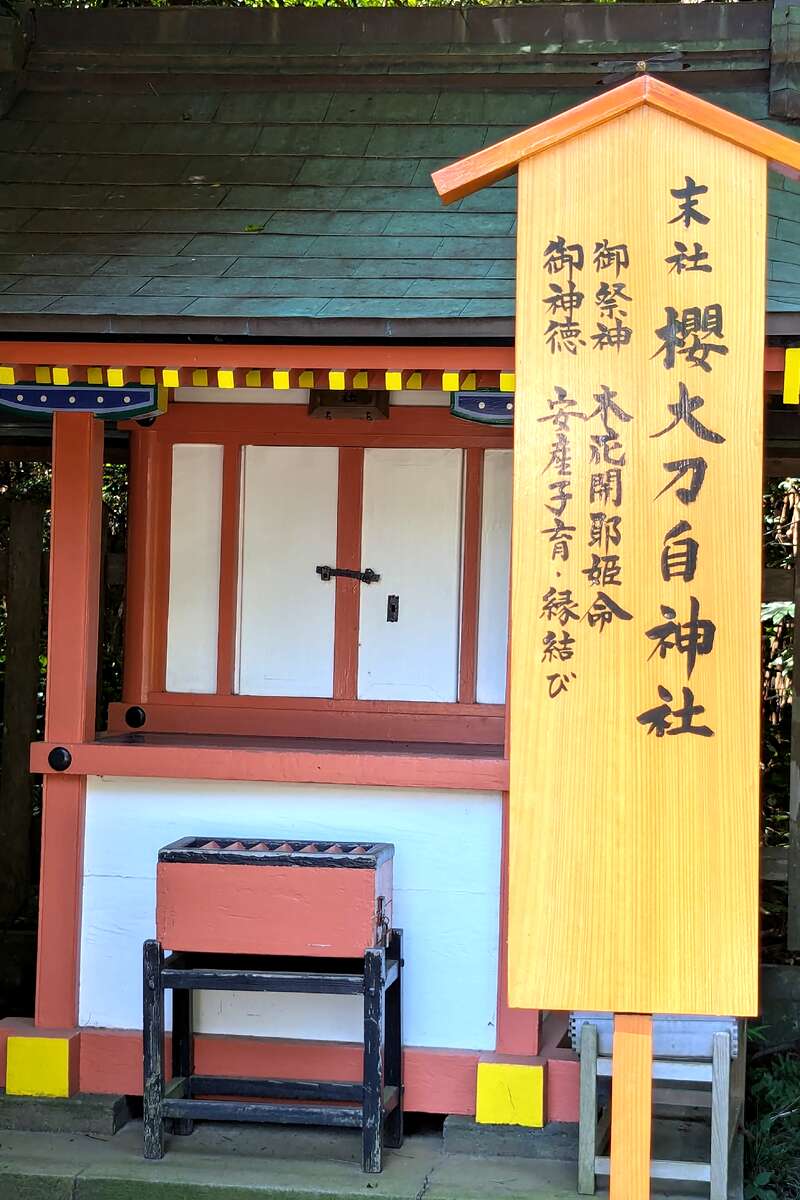 末社 櫻大刀自神社
御祭神 木花開耶姫命
御神徳 安産子育・縁結び